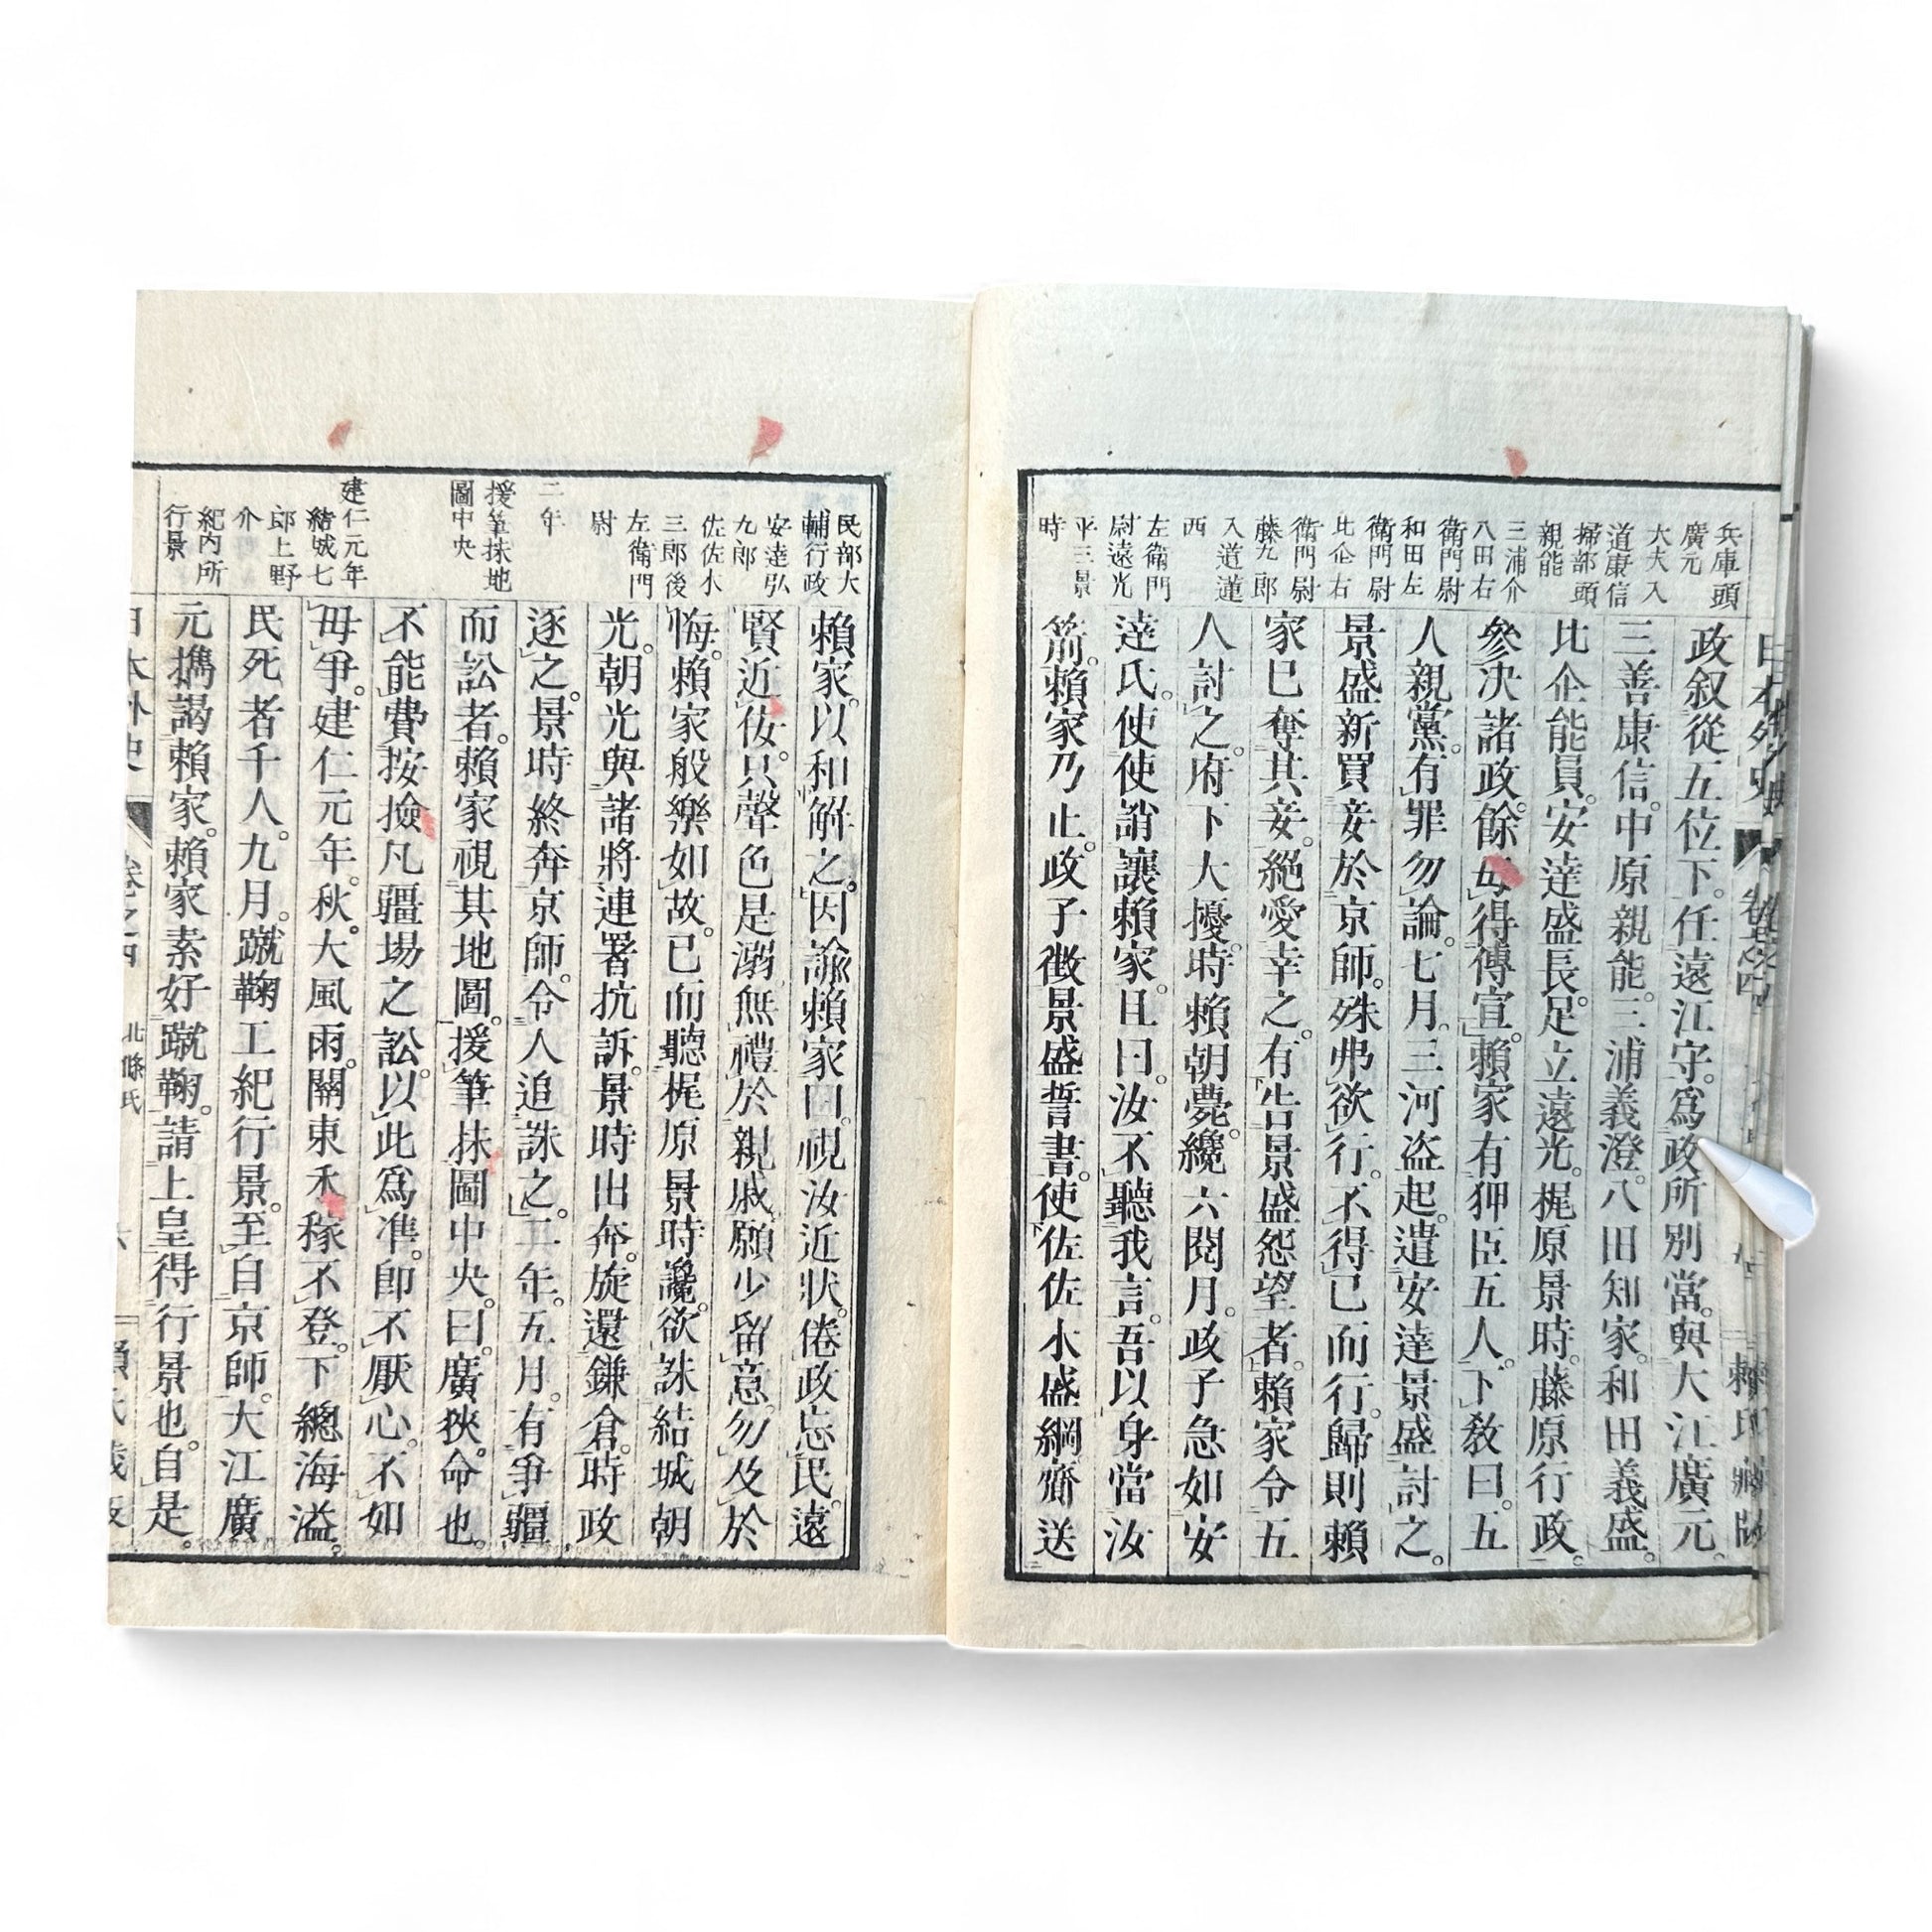 兵庫頭
廣元
大夫入
道康信
掃部頭
親能
三浦介
八田右
衛門尉
和田左
衛門尉
比企右
衛門尉
藤九郎
入道蓮
西
左衛門
尉遠光
平三景
時
政叙從五位下。任遠江守。爲政所別當。與大江廣元。
三善康信。中原親能。三浦義澄。八田知家。和田義盛。
比企能員。安達盛長。足立遠光。梶原景時。藤原行政。
參決諸政。餘毋得傳宣。賴家有狎臣五人。下敎曰。五
人親黨。有罪勿論。七月。三河盗起。遣安達景盛討之。
景盛新買妾於京師。殊弗欲行。不得已而行。歸則賴
家已奪其妾。絕愛幸之。有告景盛怨望者。賴家令五
人討之。府下大擾。時賴朝薨。纔六閱月。政子急如安
達氏。使使誚讓賴家。且曰。汝不聽我言。吾以身當汝
箭。賴家乃止。政子徵景盛誓書。使佐佐木盛綱齎送
民部大
輔行政
安達弘
九郎
佐佐木
三郎後
左衛門
尉
二年
援筆抹地
圖中央
建仁元年
結城七
郎上野
介
紀內所
行景
賴家。以和解之。因諭賴家曰。視汝近狀。倦政忘民。遠
賢近佞。只聲色是溺。無禮於親戚。願少留意。勿及於
悔。賴家般樂如故。已而聽梶原景時讒。欲誅結城朝
光。朝光與諸將連署抗訴。景時出奔。旋還鎌倉。時政
逐之。景時終奔京師。令人追誅之。二年。五月。有爭疆
而訟者。賴家視其地圖。援筆抹圖中央。曰。廣狹。命也。
不能費按撿。凡疆場之訟。以此爲准。卽不厭心。不如
毋爭。建仁元年。秋。大風雨。關東禾稼不登。下總海溢。
民死者千人。九月。蹴鞠工紀行景。至自京師。大江廣
元攜謁賴家。賴家素好蹴鞠。請上皇得行景也。自是。
日本外史
卷之四
北條氏
六
賴氏藏版